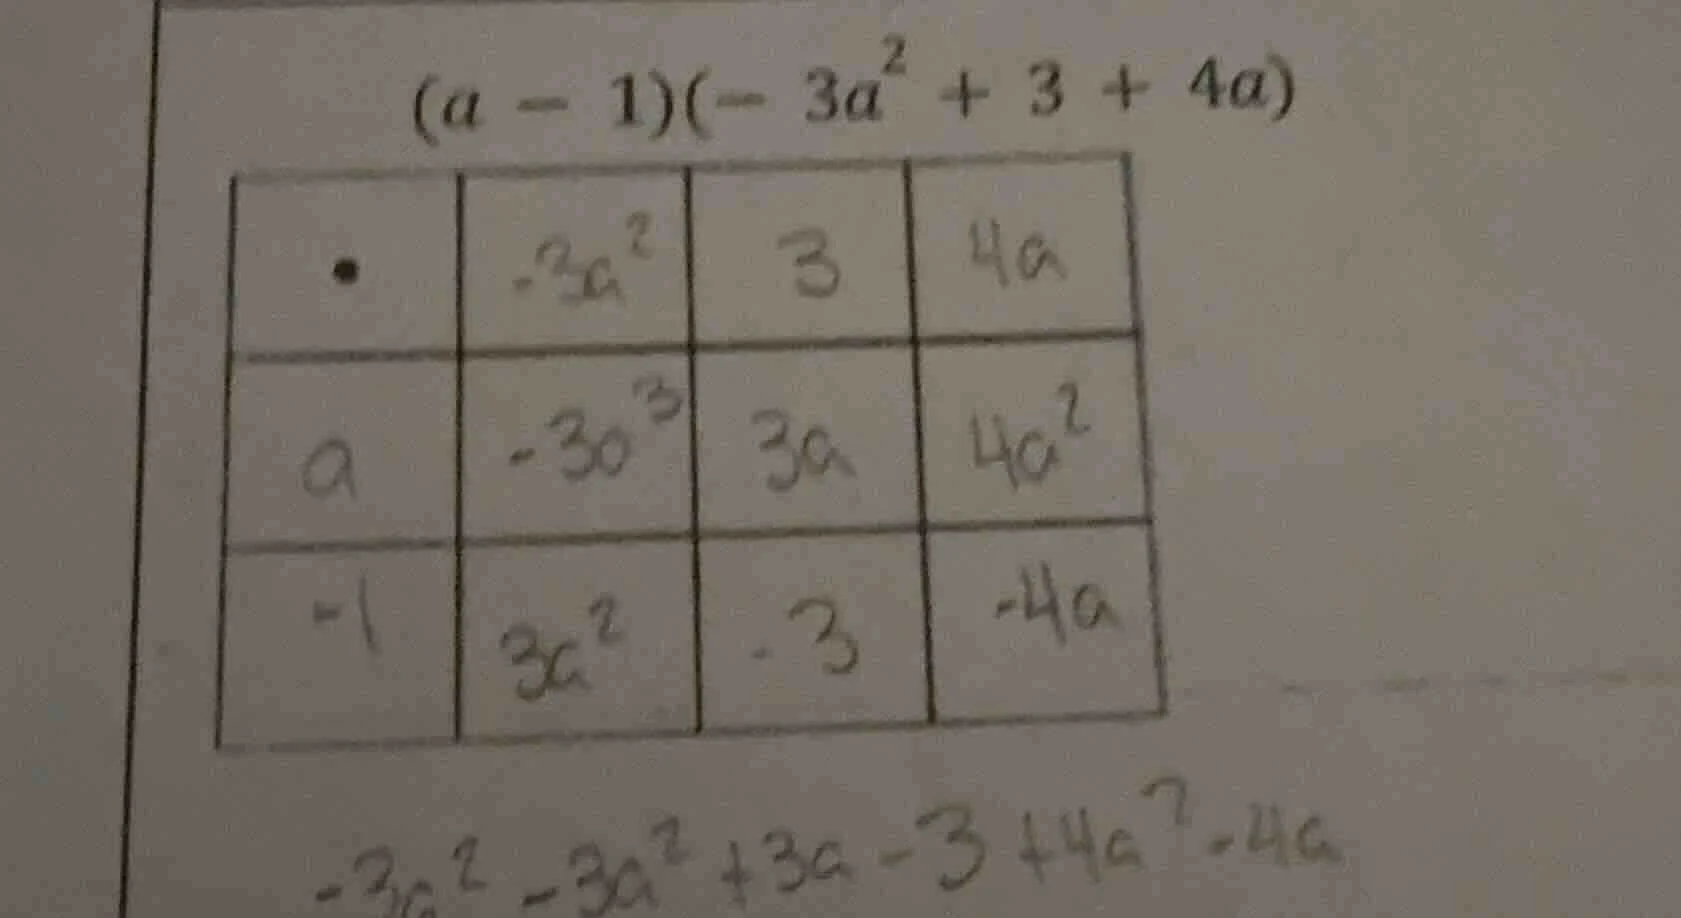 (a − 1)(− 3a² + 3 + 4a)
• -3a² 3 4a
a -3a³ 3a 4a²
-1 3a² -3 -4a
-3a² -3a² +3a -3 +4a² -4a